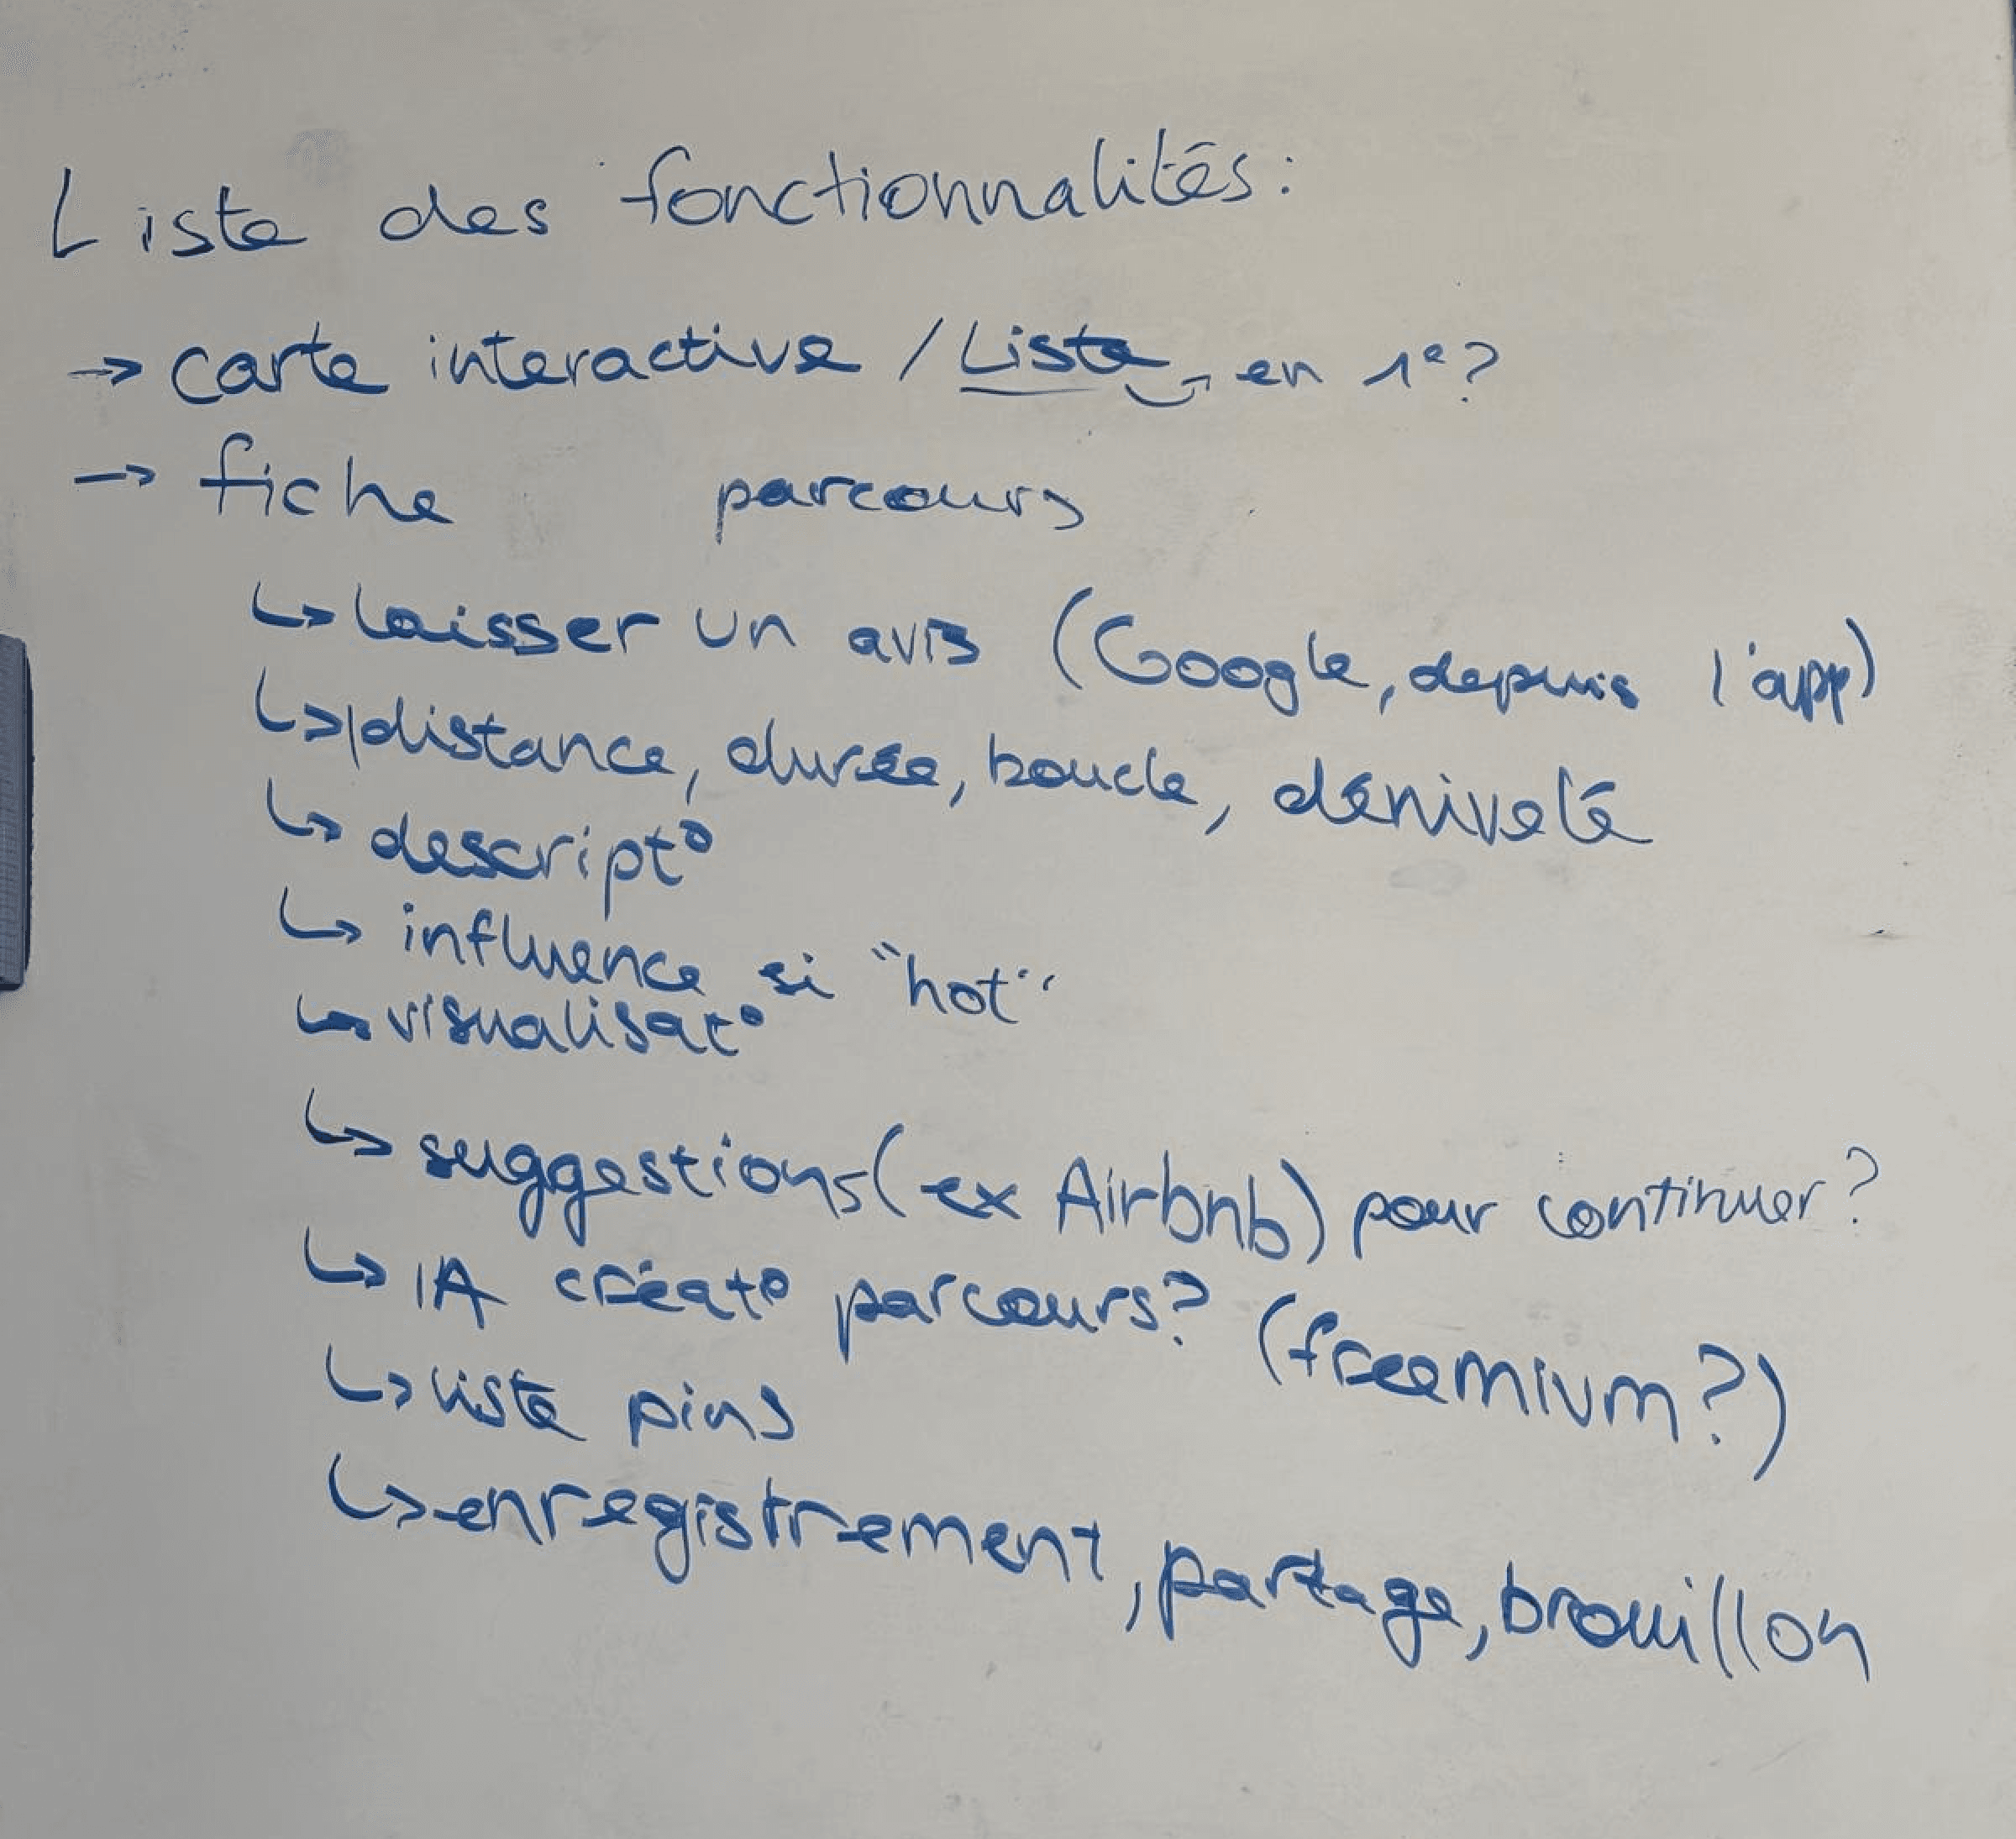 Liste des fonctionnalités:
→ carte interactive / Liste → en 1e ?
→ fiche parcours
↳ laisser un avis (Google, depuis l'app)
↳ distance, durée, boucle, dénivelé
↳ descript°
↳ influence si "hot"
↳ visualisat°
↳ suggestions (ex Airbnb) pour continuer ?
↳ IA créat° parcours ? (freemium ?)
↳ liste pins
↳ enregistrement, partage, brouillon